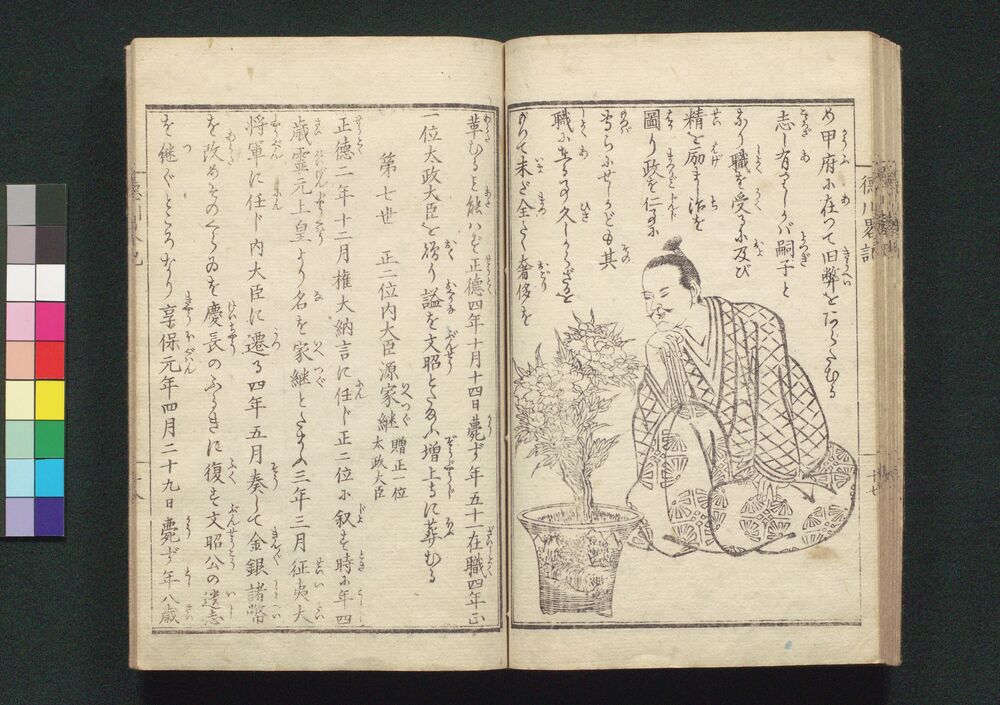 め甲府に在つて旧弊をあらたむる
志し有りしが嗣子と
なり職を受るに及び
精を励まし治を
図り政を仁に
其
職に在るの久しからざるを
もつて未だ全たく奢侈を
徳川畧記
十七
革むると能はず正徳四年十月十四日薨ず年五十一在職四年正
一位太政大臣を贈り謚を文昭とたまふ増上寺に葬むる
第七世 正二位内大臣源家継 贈正一位太政大臣
正徳二年十二月権大納言に任ド正二位に叙す時に年四
歳霊元上皇より名を家継とたまふ三年三月征夷大
将軍に任ド内大臣に遷る四年五月奏して金銀諸幣
を改めそのくらゐを慶長のふるきに復す文昭公の遺志
を継ぐところなり享保元年四月二十九日薨ず年八歳